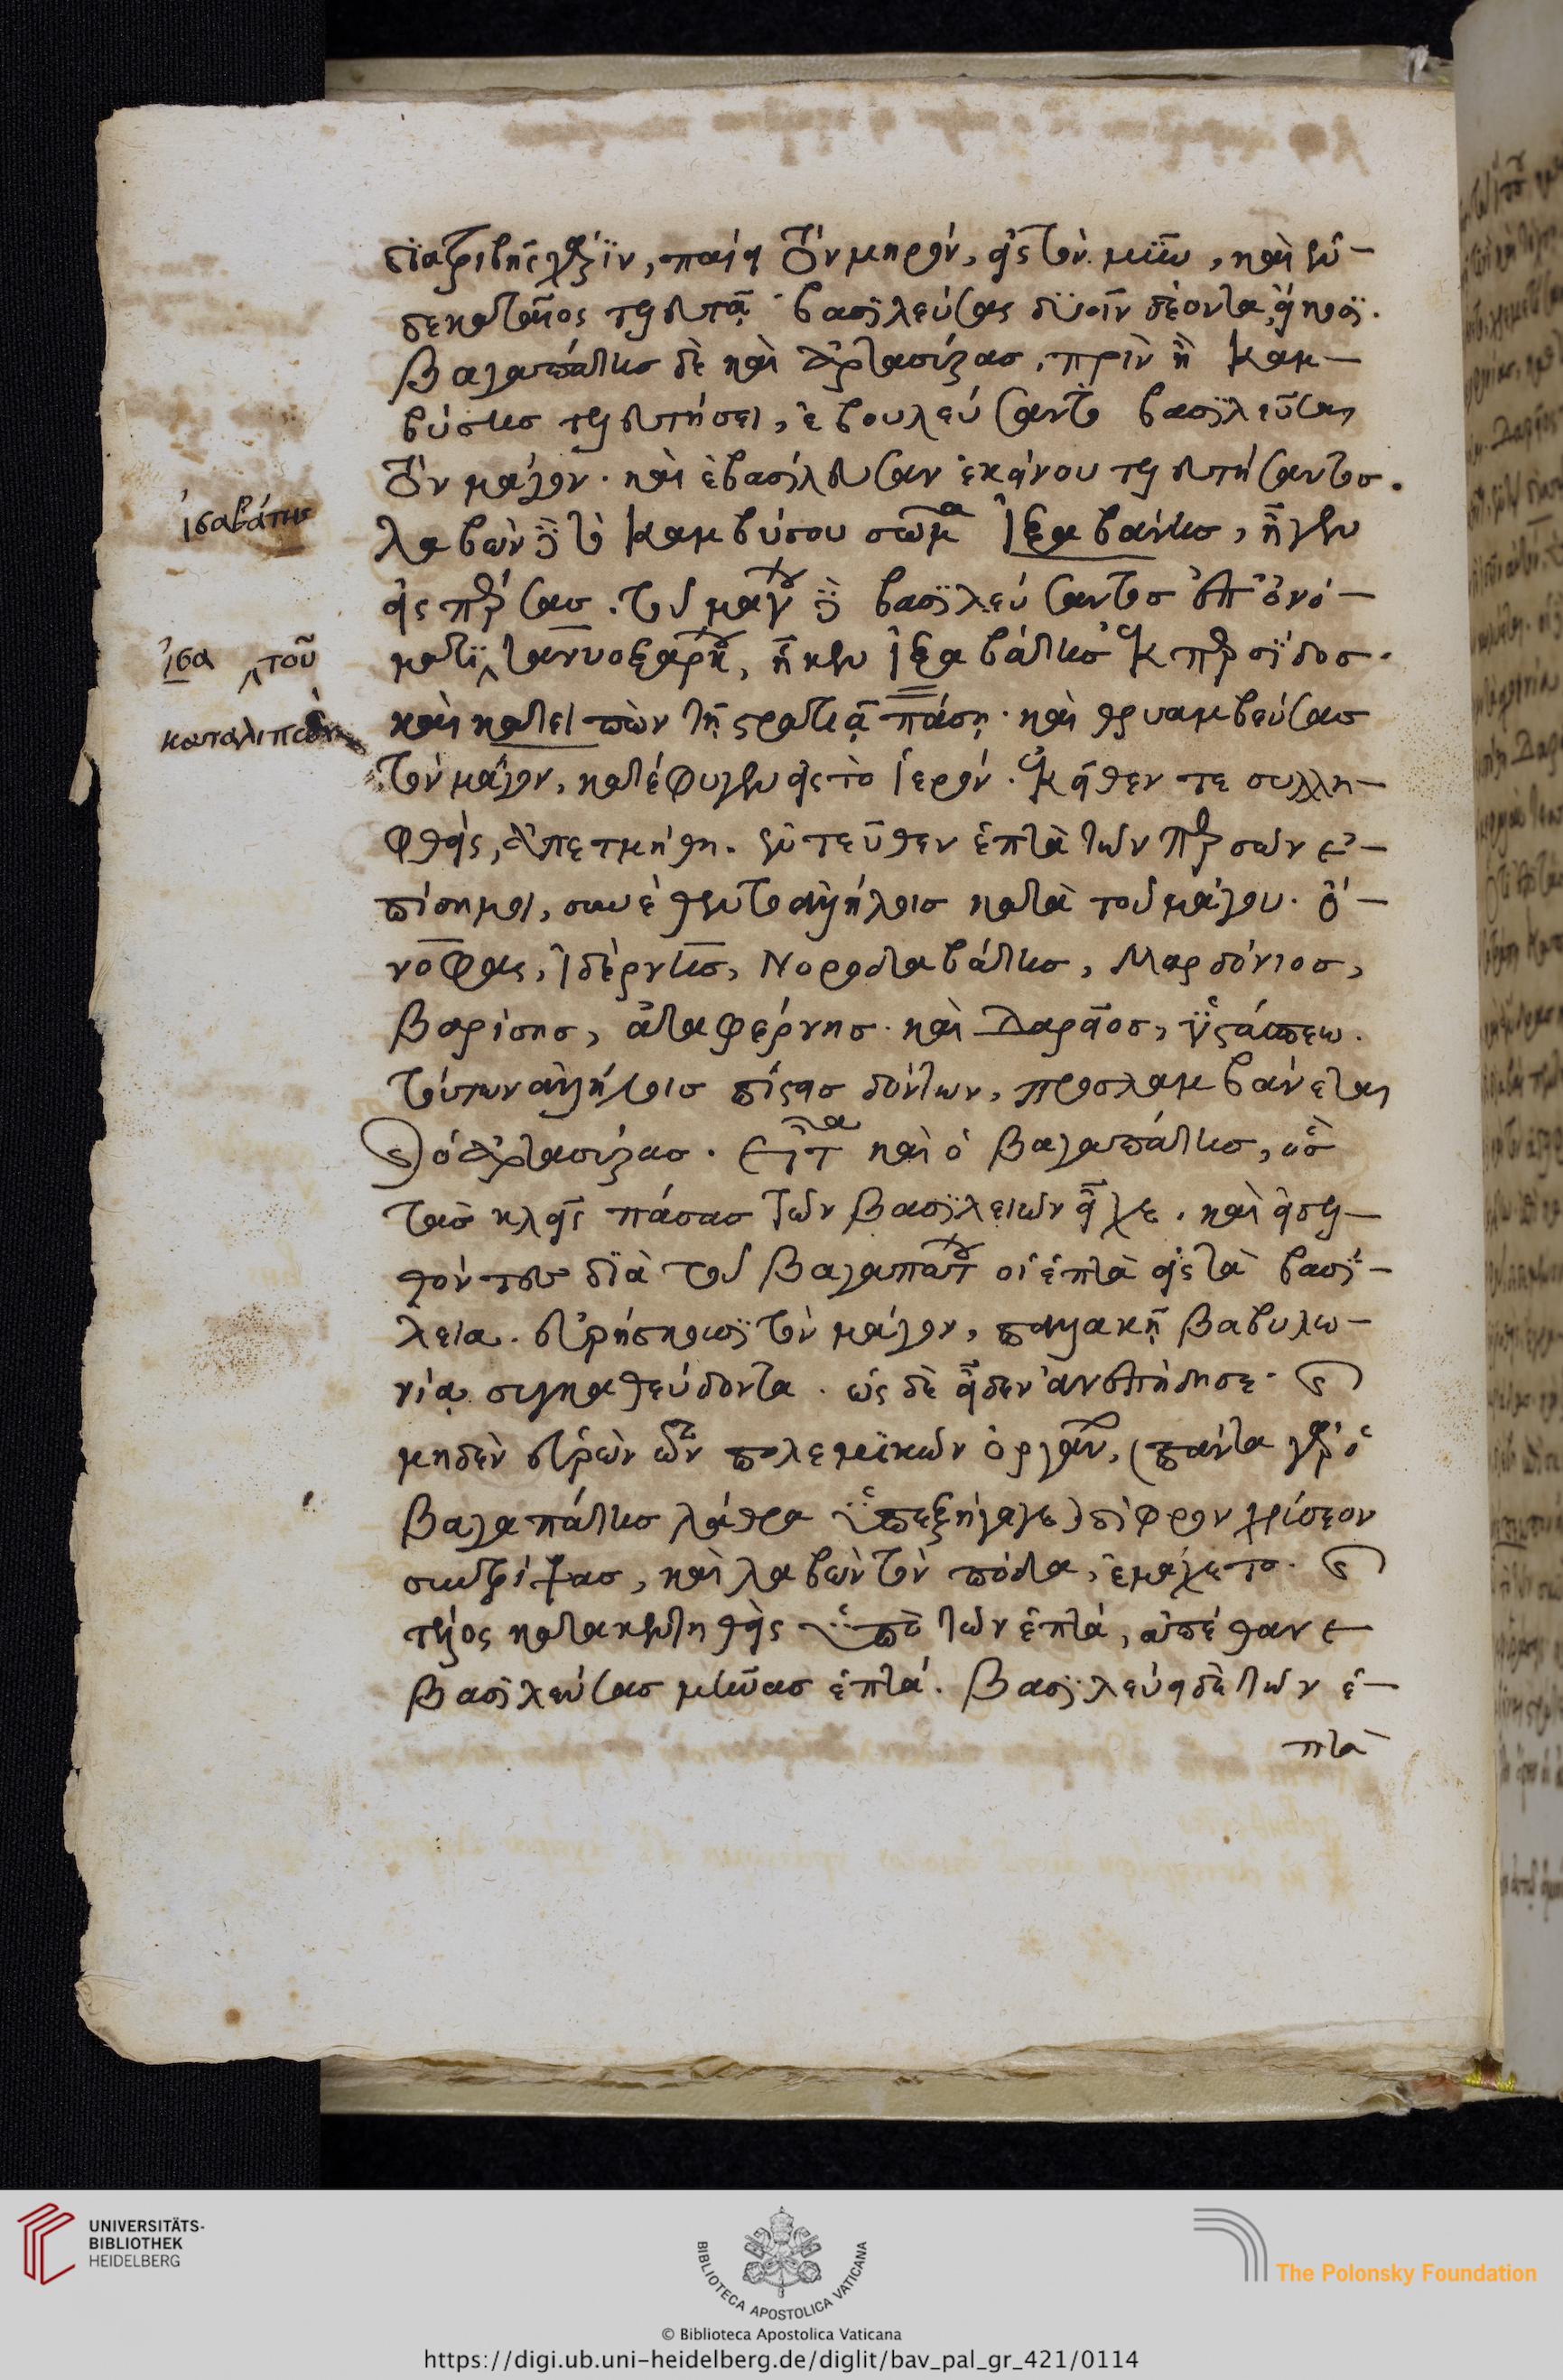 διατριβῆς χάριν, παίει τὸν μηρὸν, εἰς τὸν μῦν, καὶ ἑν-
δεκαταῖος τελευτᾷ· βασιλεύσας δυοῖν δέοντα εἴκοσι.
Βαγαπάτης δὲ καὶ ἀρτασύρας, πρὶν ἢ Καμ-
βύσης τελευτήσει, ἐβουλεύσαντο βασιλεῦσαι
τὸν μάγον. καὶ ἐβασίλευσεν ἐκείνου τελευτήσαντος.
ἰσαβάτης
λαβὼν δὲ τὸ Καμβύσου σῶμα Ἰξαβάτης, ἦγεν
εἰς πέρσας. τοῦ μάγου δὲ βασιλεύσαντος ἐπ' ὀνό-
ἰσα τοῦ
ματι τανυοξάρκου, ἧκεν Ἰξαβάτης ἐκ περσίδος.
καταλιπὼν
καὶ κατειπὼν τῇ στρατιᾷ πάσῃ· καὶ θριαμβεύσας
τὸν μάγον, κατέφυγεν εἰς τὸ ἱερόν. ἐκεῖθεν τε συλλη-
φθεὶς, ἀπετμήθη. ἐντεῦθεν ἑπτὰ τῶν περσῶν ἐ-
πίσημοι, συνέθεντο ἀλλήλοις κατὰ τοῦ μάγου. ὀ-
νόφας, Ἰδέρνης, Νοροδαβάτης, Μαρδόνιος,
Βαρίσης, ἀταφέρνης· καὶ Δαρεῖος, ὑστάσπεω.
τούτων ἀλλήλοις πίστεις δόντων, προσλαμβάνεται
καὶ ὁ ἀρτασύρας. εἶτα καὶ ὁ Βαγαπάτης, ὃς
τὰς κλεῖς πάσας τῶν Βασιλείων εἶχε. καὶ εἰσελ-
θόντες διὰ τοῦ Βαγαπάτου οἱ ἑπτὰ εἰς τὰ βασί-
λεια. εὑρίσκουσι τὸν μάγον, παλλακῇ Βαβυλω-
νίᾳ συγκαθεύδοντα. ὡς δὲ εἶδεν ἀνεπήδησε· καὶ
μηδὲν εὑρὼν τῶν πολεμικῶν ὀργάνων, (πάντα γὰρ ὁ
Βαγαπάτης λάθρα ὑπεξήγαγε) δίφρον χρύσεον
συντρίψας, καὶ λαβὼν τὸν πόδα, ἐμάχετο. καὶ
τέλος κατακεντηθεὶς ὑπὸ τῶν ἑπτά, ἀπέθανε
Βασιλεύσας μῆνας ἑπτά. Βασιλεύει δὲ τῶν ἑ-
πτὰ
UNIVERSITÄTS-
BIBLIOTHEK
HEIDELBERG
BIBLIOTECA APOSTOLICA VATICANA
The Polonsky Foundation
© Biblioteca Apostolica Vaticana
https://digi.ub.uni-heidelberg.de/diglit/bav_pal_gr_421/0114